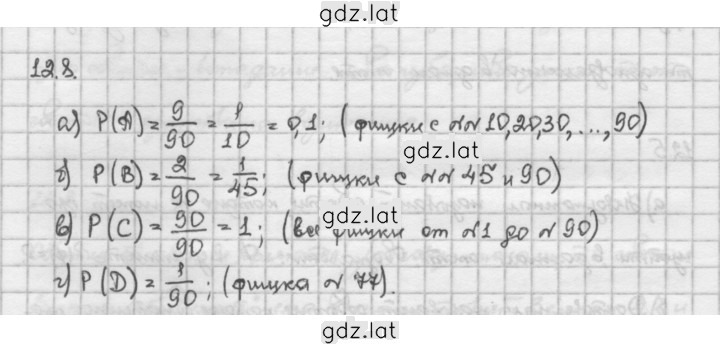 gdz.lat
12.8.
а) P(A) = 9/90 = 1/10 = 0,1; (фишки с №№ 10, 20, 30, ..., 90)
gdz.lat
б) P(B) = 2/90 = 1/45; (фишки с №№ 45 и 90)
gdz.lat
в) P(C) = 90/90 = 1; (все фишки от №1 до №90)
г) P(D) = 1/90; (фишка № 77).
gdz.lat